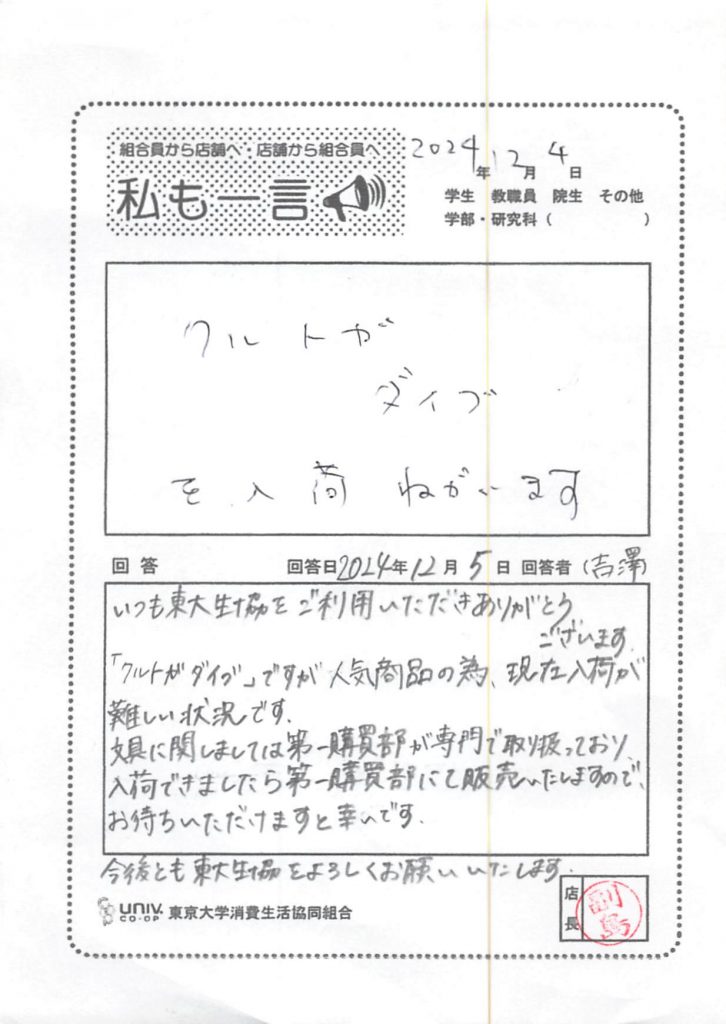 組合員から店舗へ・店舗から組合員へ
私も一言
2024年12月4日
学生 教職員 院生 その他
学部・研究科（ ）
クルトガ
ダイブ
を入荷ねがいます
回答 回答日2024年12月5日 回答者（吉澤）
いつも東大生協をご利用いただきありがとう
ございます.
「クルトガダイブ」ですが人気商品の為、現在入荷が
難しい状況です.
文具に関しましては第一購買部が専門で取り扱っており、
入荷できましたら第一購買部にて販売いたしますので、
お待ちいただけますと幸いです.
今後とも東大生協をよろしくお願いいたします.
UNIV.
CO-OP 東京大学消費生活協同組合
店長